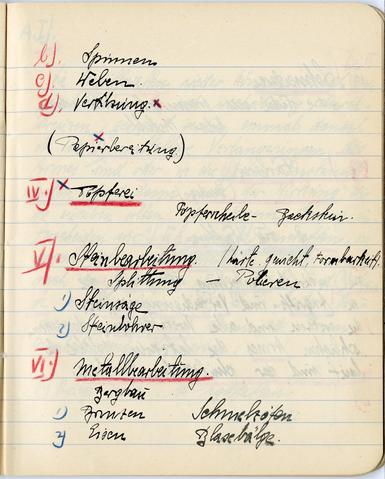 b). Spinnen
c). Weben.
d). Verfilzung. x
(Papierbereitung)
IV.) x Töpferei
Töpferscheibe - Backstein.
V). Steinbearbeitung. Härte, Formbarkeit.
Splittung - Polieren
1) Steinsäge
2) Steinbohrer
VI.) Metallbearbeitung.
Bergbau
1) Bronzen Schmelzöfen
2) Eisen Blasebälge.